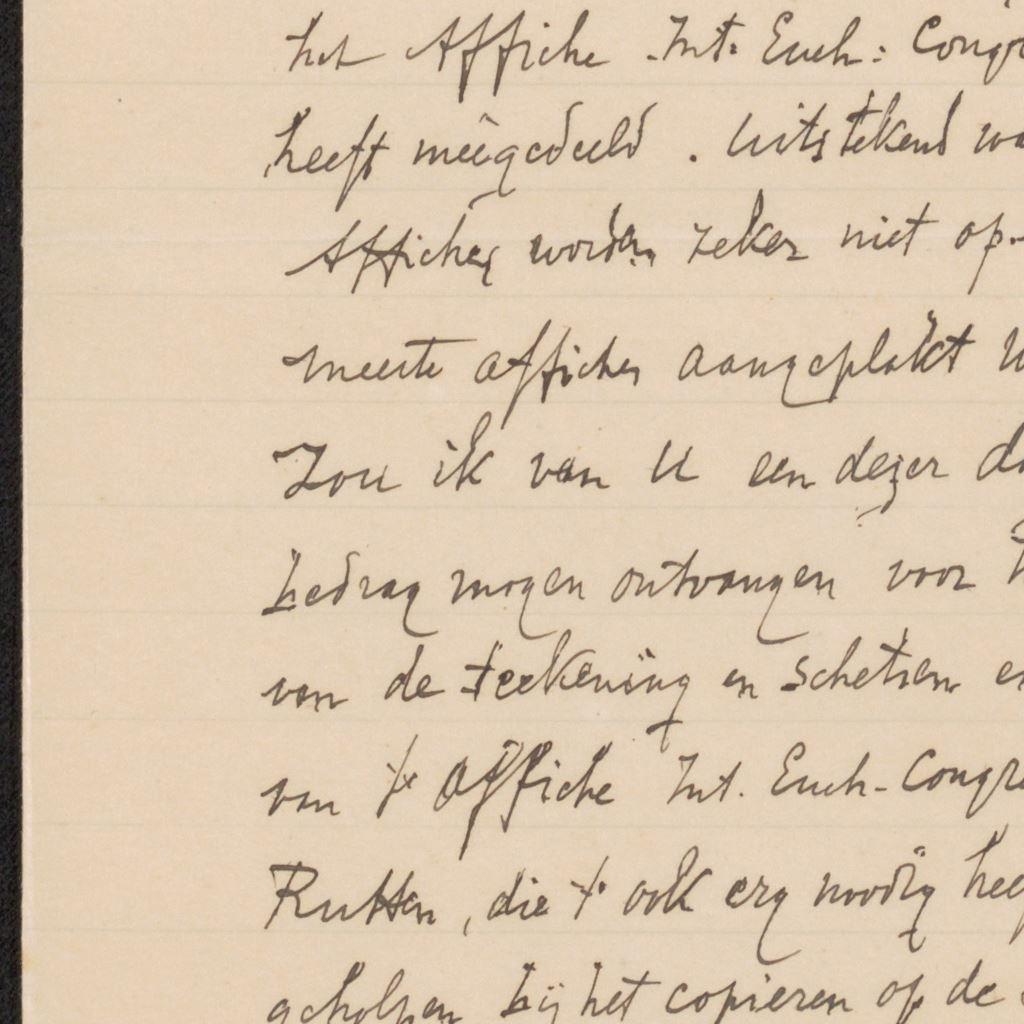 het Affiche Int: Euch: Congr
heeft meegedeeld. Uitstekend wa
Affiches worden zeker niet op-
meeste affiches aangeplakt
Zou ik van U een dezer da
bedrag mogen ontvangen voor
van de teekening en schetsen en
van 't Affiche Int. Euch-Congre
Rutten, die 't ook erg noodig hee
geholpen bij het copieren op de